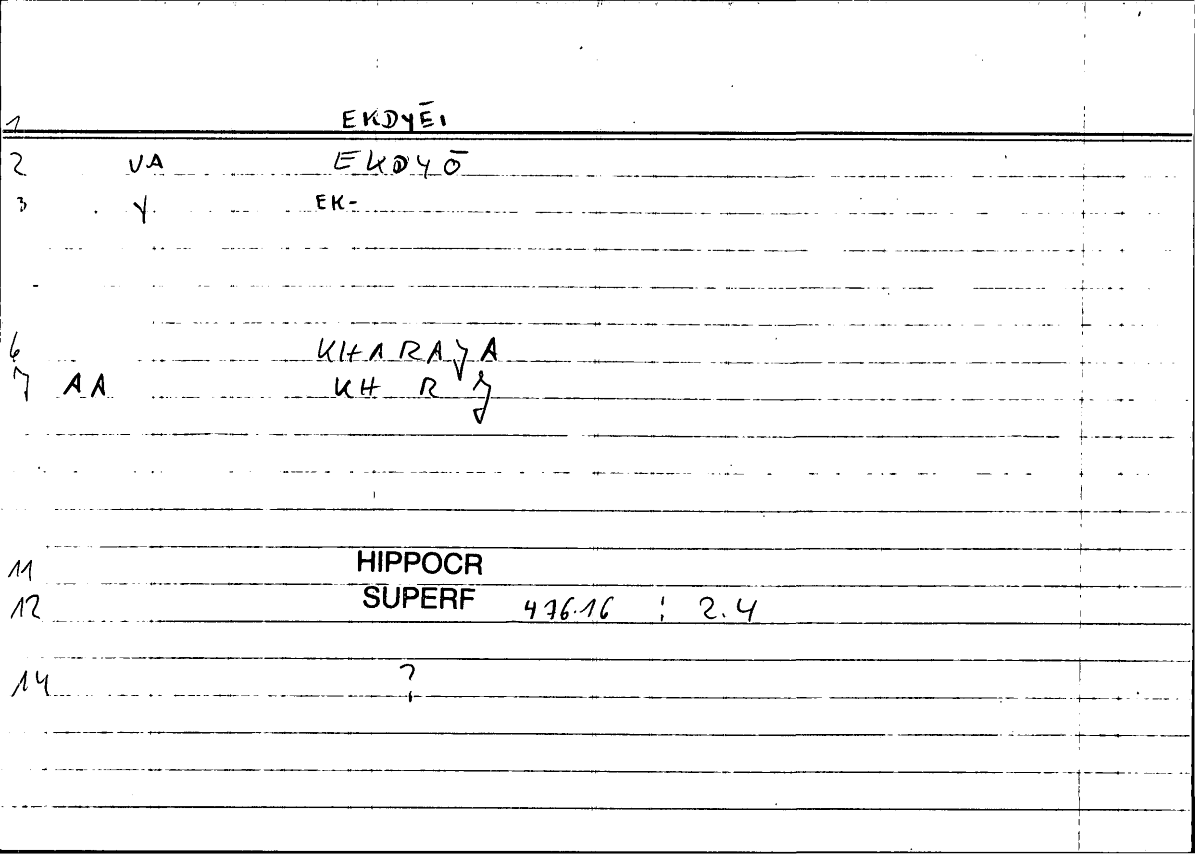 1 EKDYĒI
2 VA EKDYŌ
3 Y EK-
6 KHARAJA
7 AA KH R J
11 HIPPOCR
12 SUPERF 476.16 : 2.4
14 ?